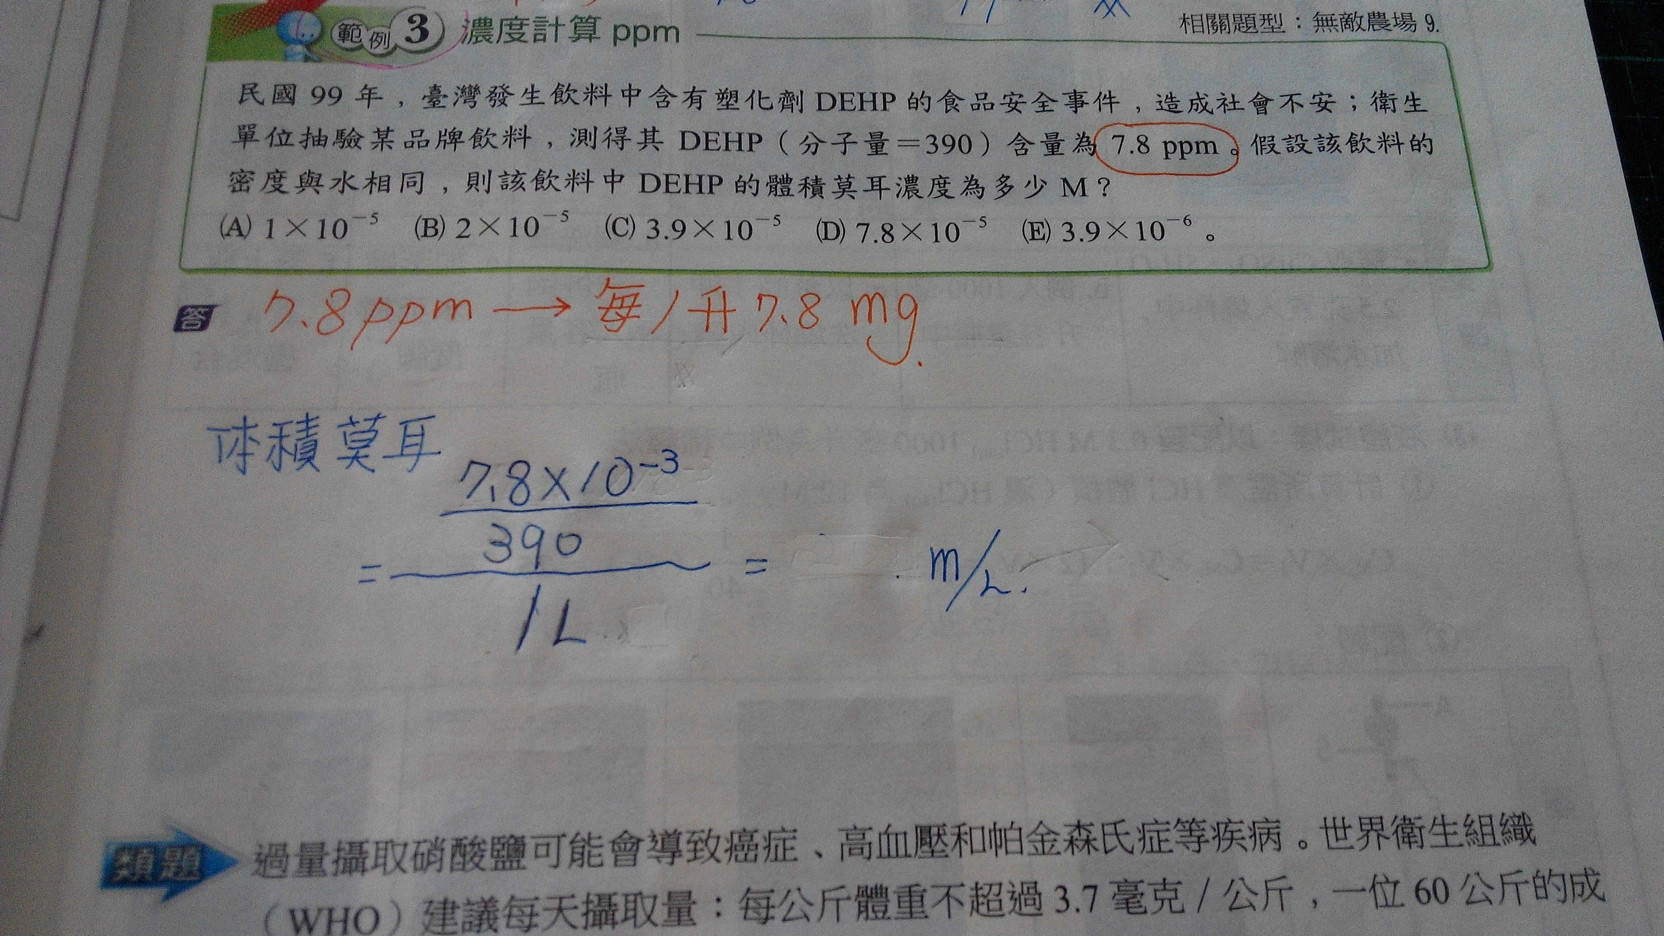 範例 3 濃度計算 ppm
相關題型：無敵農場 9.
民國 99 年，臺灣發生飲料中含有塑化劑 DEHP 的食品安全事件，造成社會不安；衛生
單位抽驗某品牌飲料，測得其 DEHP（分子量＝390）含量為 7.8 ppm。假設該飲料的
密度與水相同，則該飲料中 DEHP 的體積莫耳濃度為多少 M？
(A) 1×10⁻⁵ (B) 2×10⁻⁵ (C) 3.9×10⁻⁵ (D) 7.8×10⁻⁵ (E) 3.9×10⁻⁶。
答 7.8 ppm → 每1升 7.8 mg.
体積莫耳
7.8×10⁻³
390
= = m/L.
1L
類題 過量攝取硝酸鹽可能會導致癌症、高血壓和帕金森氏症等疾病。世界衛生組織
（WHO）建議每天攝取量：每公斤體重不超過 3.7 毫克／公斤，一位 60 公斤的成